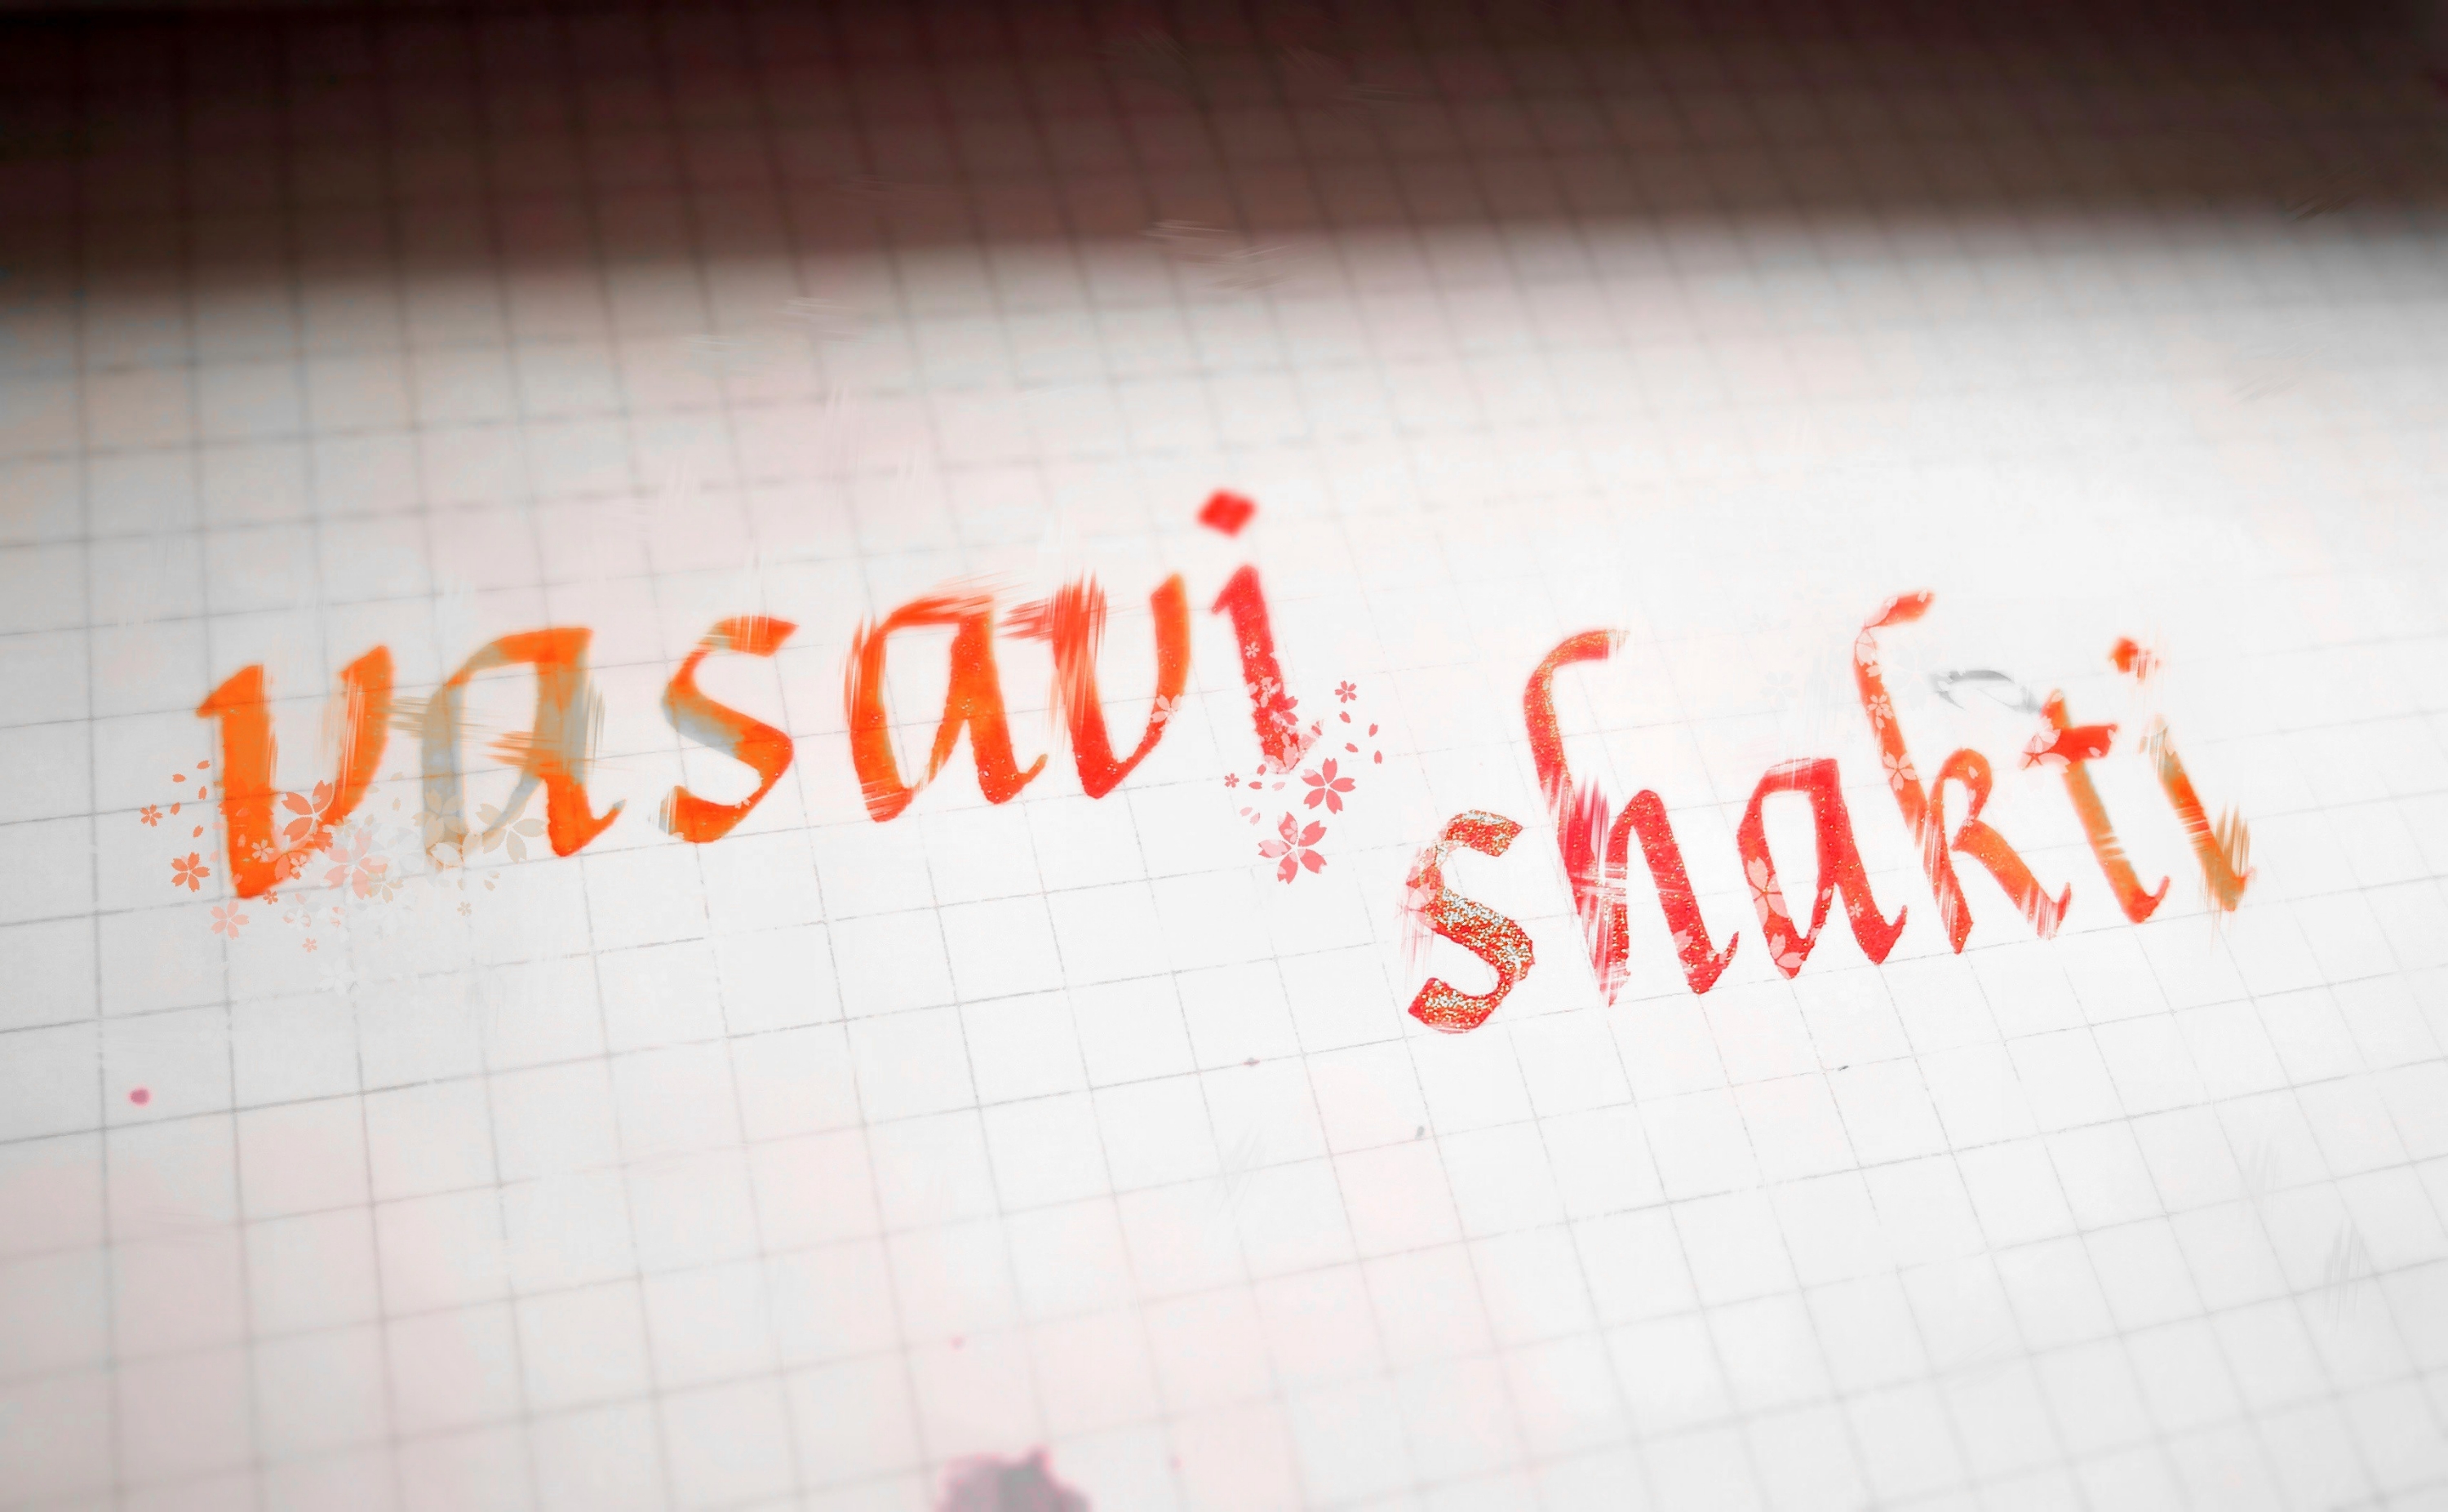 vasavi
shakti